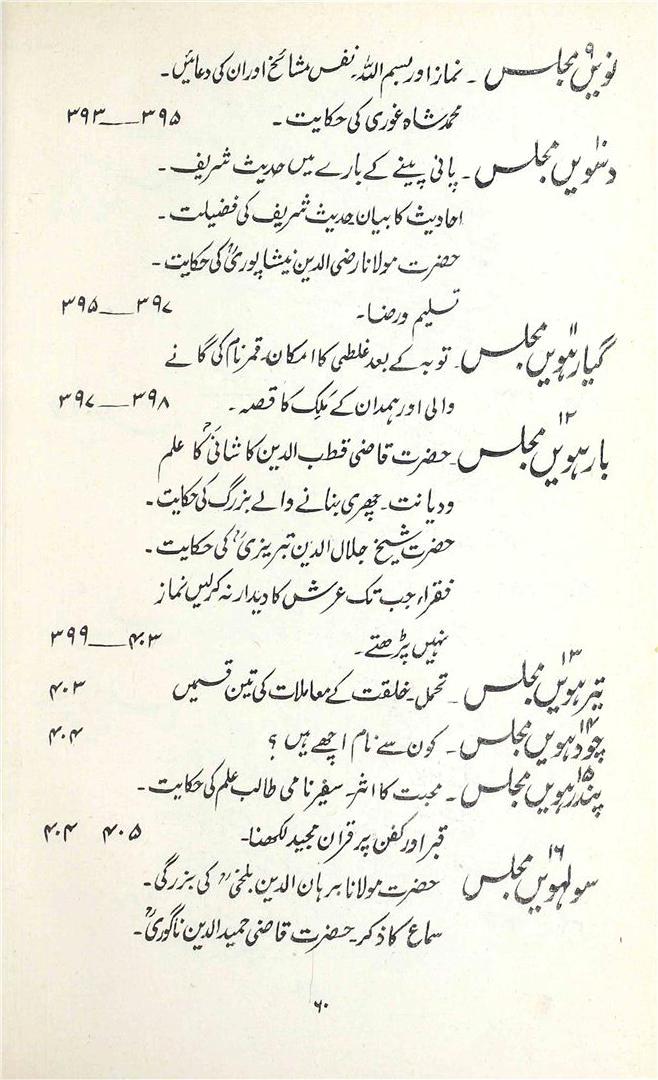 نویں۹ مجلس ۔ نماز اور بسم اللہ ۔ نفس مشائخ اور ان کی دعائیں ۔
محمد شاہ غوری کی حکایت ۔ ۳۹۳ــــ۳۹۵
دسویں۱۰ مجلس ۔ پانی پینے کے بارے میں حدیث شریف ۔
احادیث کا بیان حدیث شریف کی فضیلت ۔
حضرت مولانا رضی الدین نیشاپوریؒ کی حکایت ۔
تسلیم و رضا ۔ ۳۹۵ــــ۳۹۷
گیارہویں۱۱ مجلس ۔ توبہ کے بعد غلطی کا امکان ۔ قمر نام کی گانے
والی اور ہمدان کے مَلِک کا قصہ ۔ ۳۹۷ــــ۳۹۸
بارہویں۱۲ مجلس ۔ حضرت قاضی قطب الدین کاشانیؒ کا علم
و دیانت ۔ چھری بنانے والے بزرگ کی حکایت ۔
حضرت شیخ جلال الدین تبریزیؒ کی حکایت ۔
فقراء جب تک عرش کا دیدار نہ کرلیں نماز
نہیں پڑھتے ۔ ۳۹۹ــــ۴۰۳
تیرہویں۱۳ مجلس ۔ تحمل ۔ خلقت کے معاملات کی تین قسمیں ۴۰۳
چودہویں۱۴ مجلس ۔ کون سے نام اچھے ہیں ؟ ۴۰۴
پندرہویں۱۵ مجلس ۔ محبت کا اثر ۔ سفیر نامی طالب علم کی حکایت ۔
قبر اور کفن پر قران مجید لکھنا ۔ ۴۰۴ ۴۰۵
سولہویں۱۶ مجلس حضرت مولانا برہان الدین بلخیؒ کی بزرگی ۔
سماع کا ذکر ۔ حضرت قاضی حمید الدین ناگوریؒ ۔
۶۰